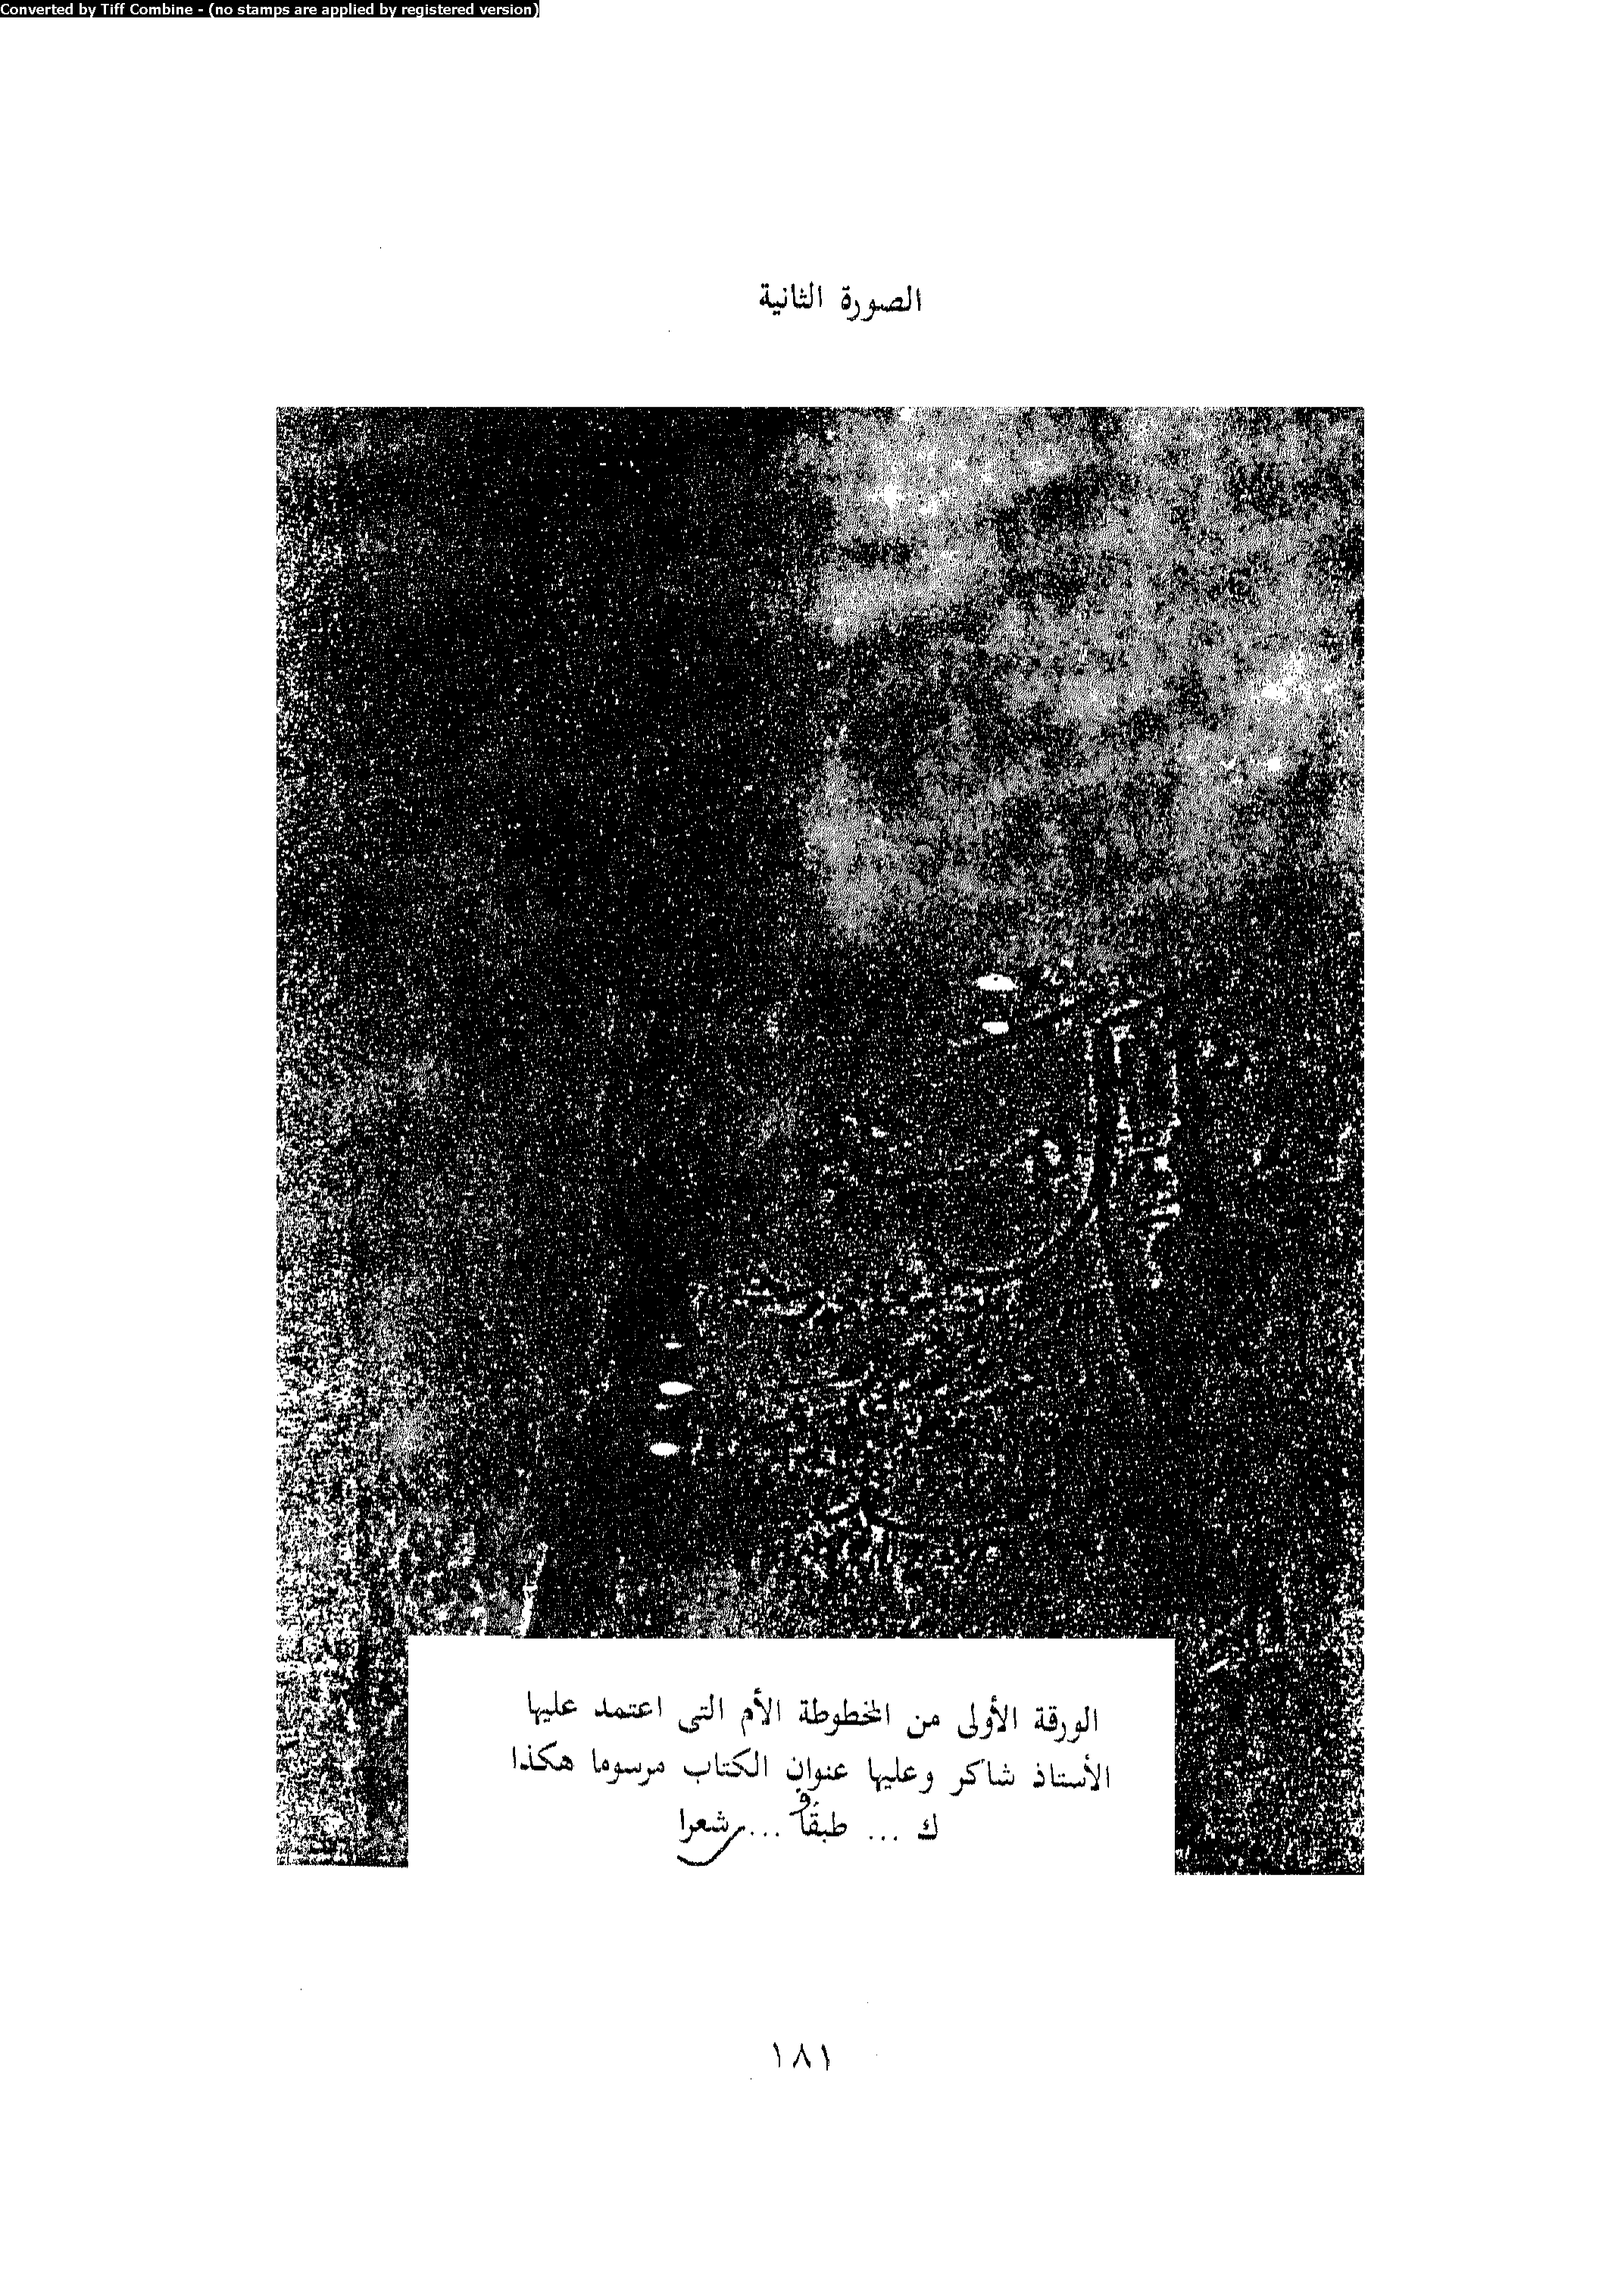 Converted by Tiff Combine - (no stamps are applied by registered version)
الصورة الثانية
الورقة الأولى من المخطوطة الأم التى اعتمد عليها
الأستاذ شاكر وعليها عنوان الكتاب مرسوما هكذا
ك ... طبقا ... شعرا
١٨١